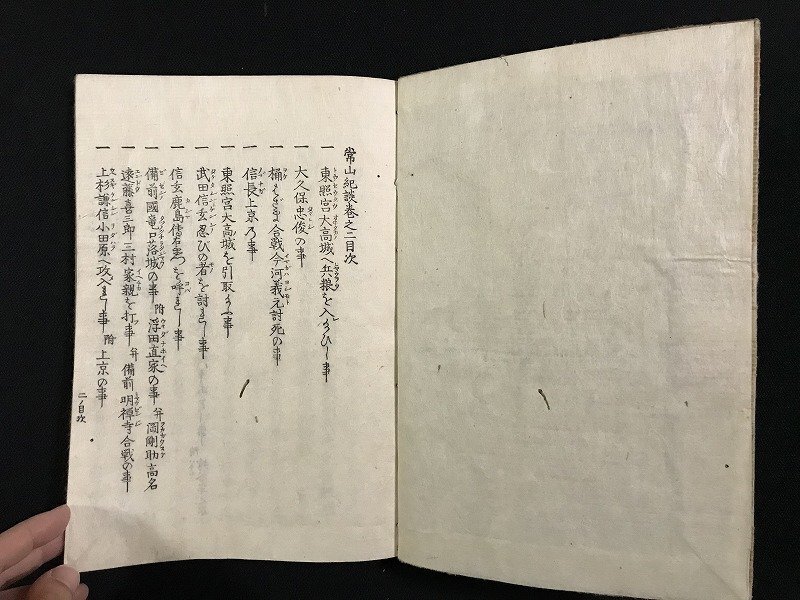 常山紀談巻之二目次
一 東照宮大高城へ兵粮を入給ひし事
一 大久保忠俊の事
一 桶はざま合戦今河義元討死の事
一 信長上京乃事
一 東照宮大高城を引取給ふ事
一 武田信玄忍びの者を討れし事
一 信玄鹿島傳左衛門を呼れし事
一 備前國竜口落城の事 附 浮田直家の事 并 岡剛助高名
一 遠藤喜三郎三村家親を打事 并 備前明禅寺合戦の事
一 上杉謙信小田原へ攻入れし事 附 上京の事
二ノ目次